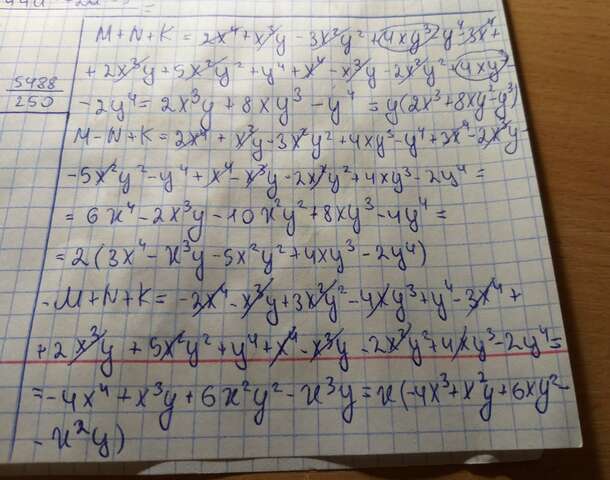 5488
250
M+N+K = 2x⁴+x³y - 3x²y² + 4xy³ - y⁴ - 3x⁴ +
+ 2x³y + 5x²y² + y⁴ + x⁴ - x³y - 2x²y² + 4xy³
- 2y⁴ = 2x³y + 8xy³ - y⁴ = y(2x³+8xy²-y³)
M-N+K = 2x⁴ + x³y - 3x²y² + 4xy³ - y⁴ + 3x⁴ - 2x³y
- 5x²y² - y⁴ + x⁴ - x³y - 2x²y² + 4xy³ - 2y⁴ =
= 6x⁴ - 2x³y - 10x²y² + 8xy³ - 4y⁴ =
= 2(3x⁴ - x³y - 5x²y² + 4xy³ - 2y⁴)
-M+N+K = -3x⁴ - x³y + 3x²y² - 4xy³ + y⁴ - 3x⁴ +
+ 2x³y + 5x²y² + y⁴ + x⁴ - x³y - 2x²y² + 4xy³ - 2y⁴ =
= -4x⁴ + x³y + 6x²y² - x³y = x(-4x³ + x²y + 6xy² -
- x²y)